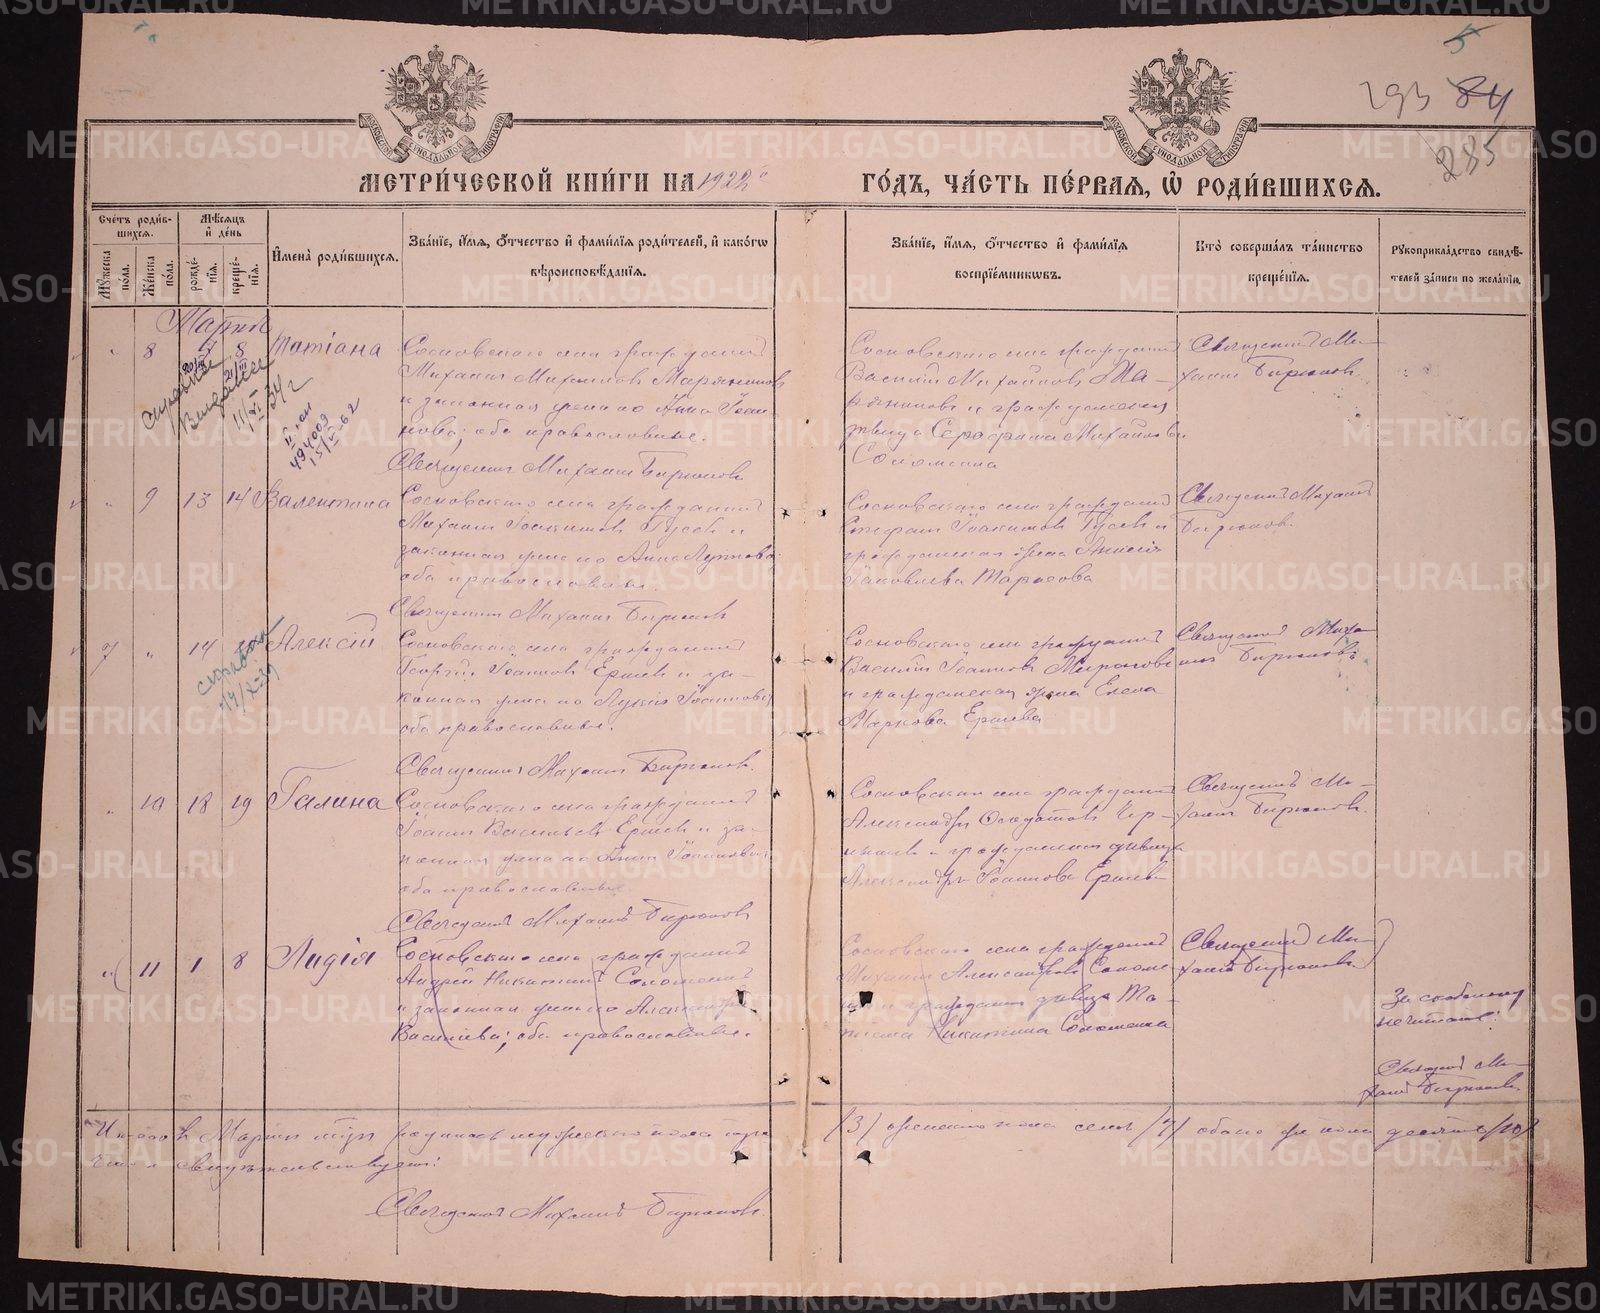 5
293 84
285
МОСКОВСКОЙ СѴНОДАЛЬНОЙ ТИПОГРАФІИ
МОСКОВСКОЙ СѴНОДАЛЬНОЙ ТИПОГРАФІИ
МЕТРИ́ЧЕСКОЙ КНИ́ГИ НА 1922 ГО́ДЪ, ЧА́СТЬ ПЕ́РВАЯ, Ѽ РОДИ́ВШИХСЯ.
Сче́тъ роди́в-
шихся.
Мꙋжеска
пола.
Же́нска
пола.
Мѣсяцъ
и҆ де́нь
рожде́-
нія.
креще́-
нія.
И҆мена̀ роди́вшихся.
Зва́ніе, и҆́мя, ѻ҆́тчество и҆ фами́лія роди́телей, и҆ како́гѡ
вѣроисповѣ́данія.
Зва́ніе, и҆́мя, ѻ҆́тчество и҆ фами́лія
воспріе́мникѡвъ.
Кто̀ соверша́лъ та́инство
креще́нія.
Рꙋкоприкла́дство свидѣ́-
телей за́писи по жела́нію.
Мартъ
8 8 Татіана
Сосновскаго села гражданинъ
Михаилъ Михаиловъ Марьянинов
и законная жена его Анна Іоан-
нова; оба православные.
Священникъ Михаилъ Бирюковъ
Сосновскаго села гражданинъ
Василій Михайловъ Ма-
рьяниновъ и гражданская
дѣвица Серафима Михайлова
Соломеина
Священникъ Ми-
хаилъ Бирюковъ.
справка
Выдана
11/VI 34 г
II-юн
494009
15/V-62
9 13 14 Валентина
Сосновскаго села гражданинъ
Михаилъ Іоакимовъ Гусевъ и
законная жена его Анна
оба православные.
Священникъ Михаилъ Бирюковъ
Сосновскаго села гражданинъ
Стефанъ Іоакимовъ Гусевъ и
гражданская жена
Іаковлева Тарасова
Священникъ Михаилъ
Бирюковъ.
7 „ 14 Алексій
справка
14/X-39
Сосновскаго села гражданинъ
Георгій Іоанновъ Ершевъ и за-
конная жена его Лукія Іоаннова;
оба православные.
Священникъ Михаилъ Бирюковъ.
Сосновскаго села гражданинъ
Василій Іоанновъ
и гражданская жена Елена
Маркова Ершева
Священникъ Миха-
илъ Бирюковъ
„ 10 18 19 Галина
Сосновскаго села гражданинъ
Іоаннъ Васильевъ Ершевъ и за-
конная жена его Анна Іоаннова;
оба православные
Священникъ Михаилъ Бирюковъ
Сосновскаго села гражданинъ
Александръ
и гражданская дѣвица
Александра Іоаннова Ершева
Священникъ Ми-
хаилъ Бирюковъ.
„ 11 1 8 Лидія
Сосновскаго села гражданинъ
Андрей Никитинъ Соломеинъ
и законная жена его Александра
Васильева; оба православные.
Сосновскаго села гражданинъ
Михаилъ Александровъ Соломе-
инъ и гражданская дѣвица Та-
тіана Никитина Соломеина
Священникъ Ми-
хаилъ Бирюковъ.
не читать:
Священникъ Ми-
хаилъ Бирюковъ
Итого въ Мартѣ м-цѣ родилось мужескаго пола три /3/ женскаго пола семь /7/ обоего же пола десять /10/
свидѣтельствуетъ:
Священникъ Михаилъ Бирюковъ
METRIKI.GASO-URAL.RU